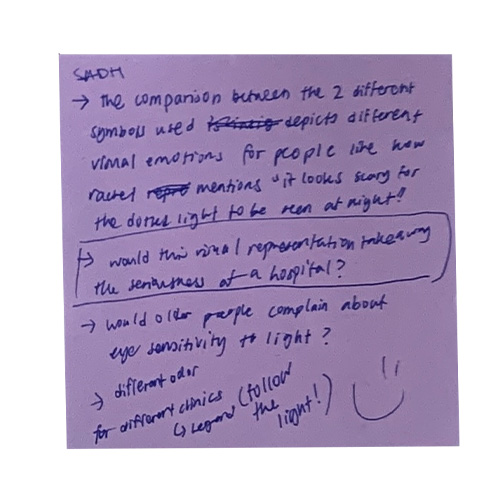 SADH
→ the comparison between the 2 different
symbols used depicts different
visual emotions for people like how
rachel mentions "it looks scary for
the dotted light to be seen at night!!
↳ would this visual representation takeaway
the seriousness of a hospital?
→ would older people complain about
eye sensitivity to light?
→ different odor
for different clinics
↳ Legend (follow
the
light!)